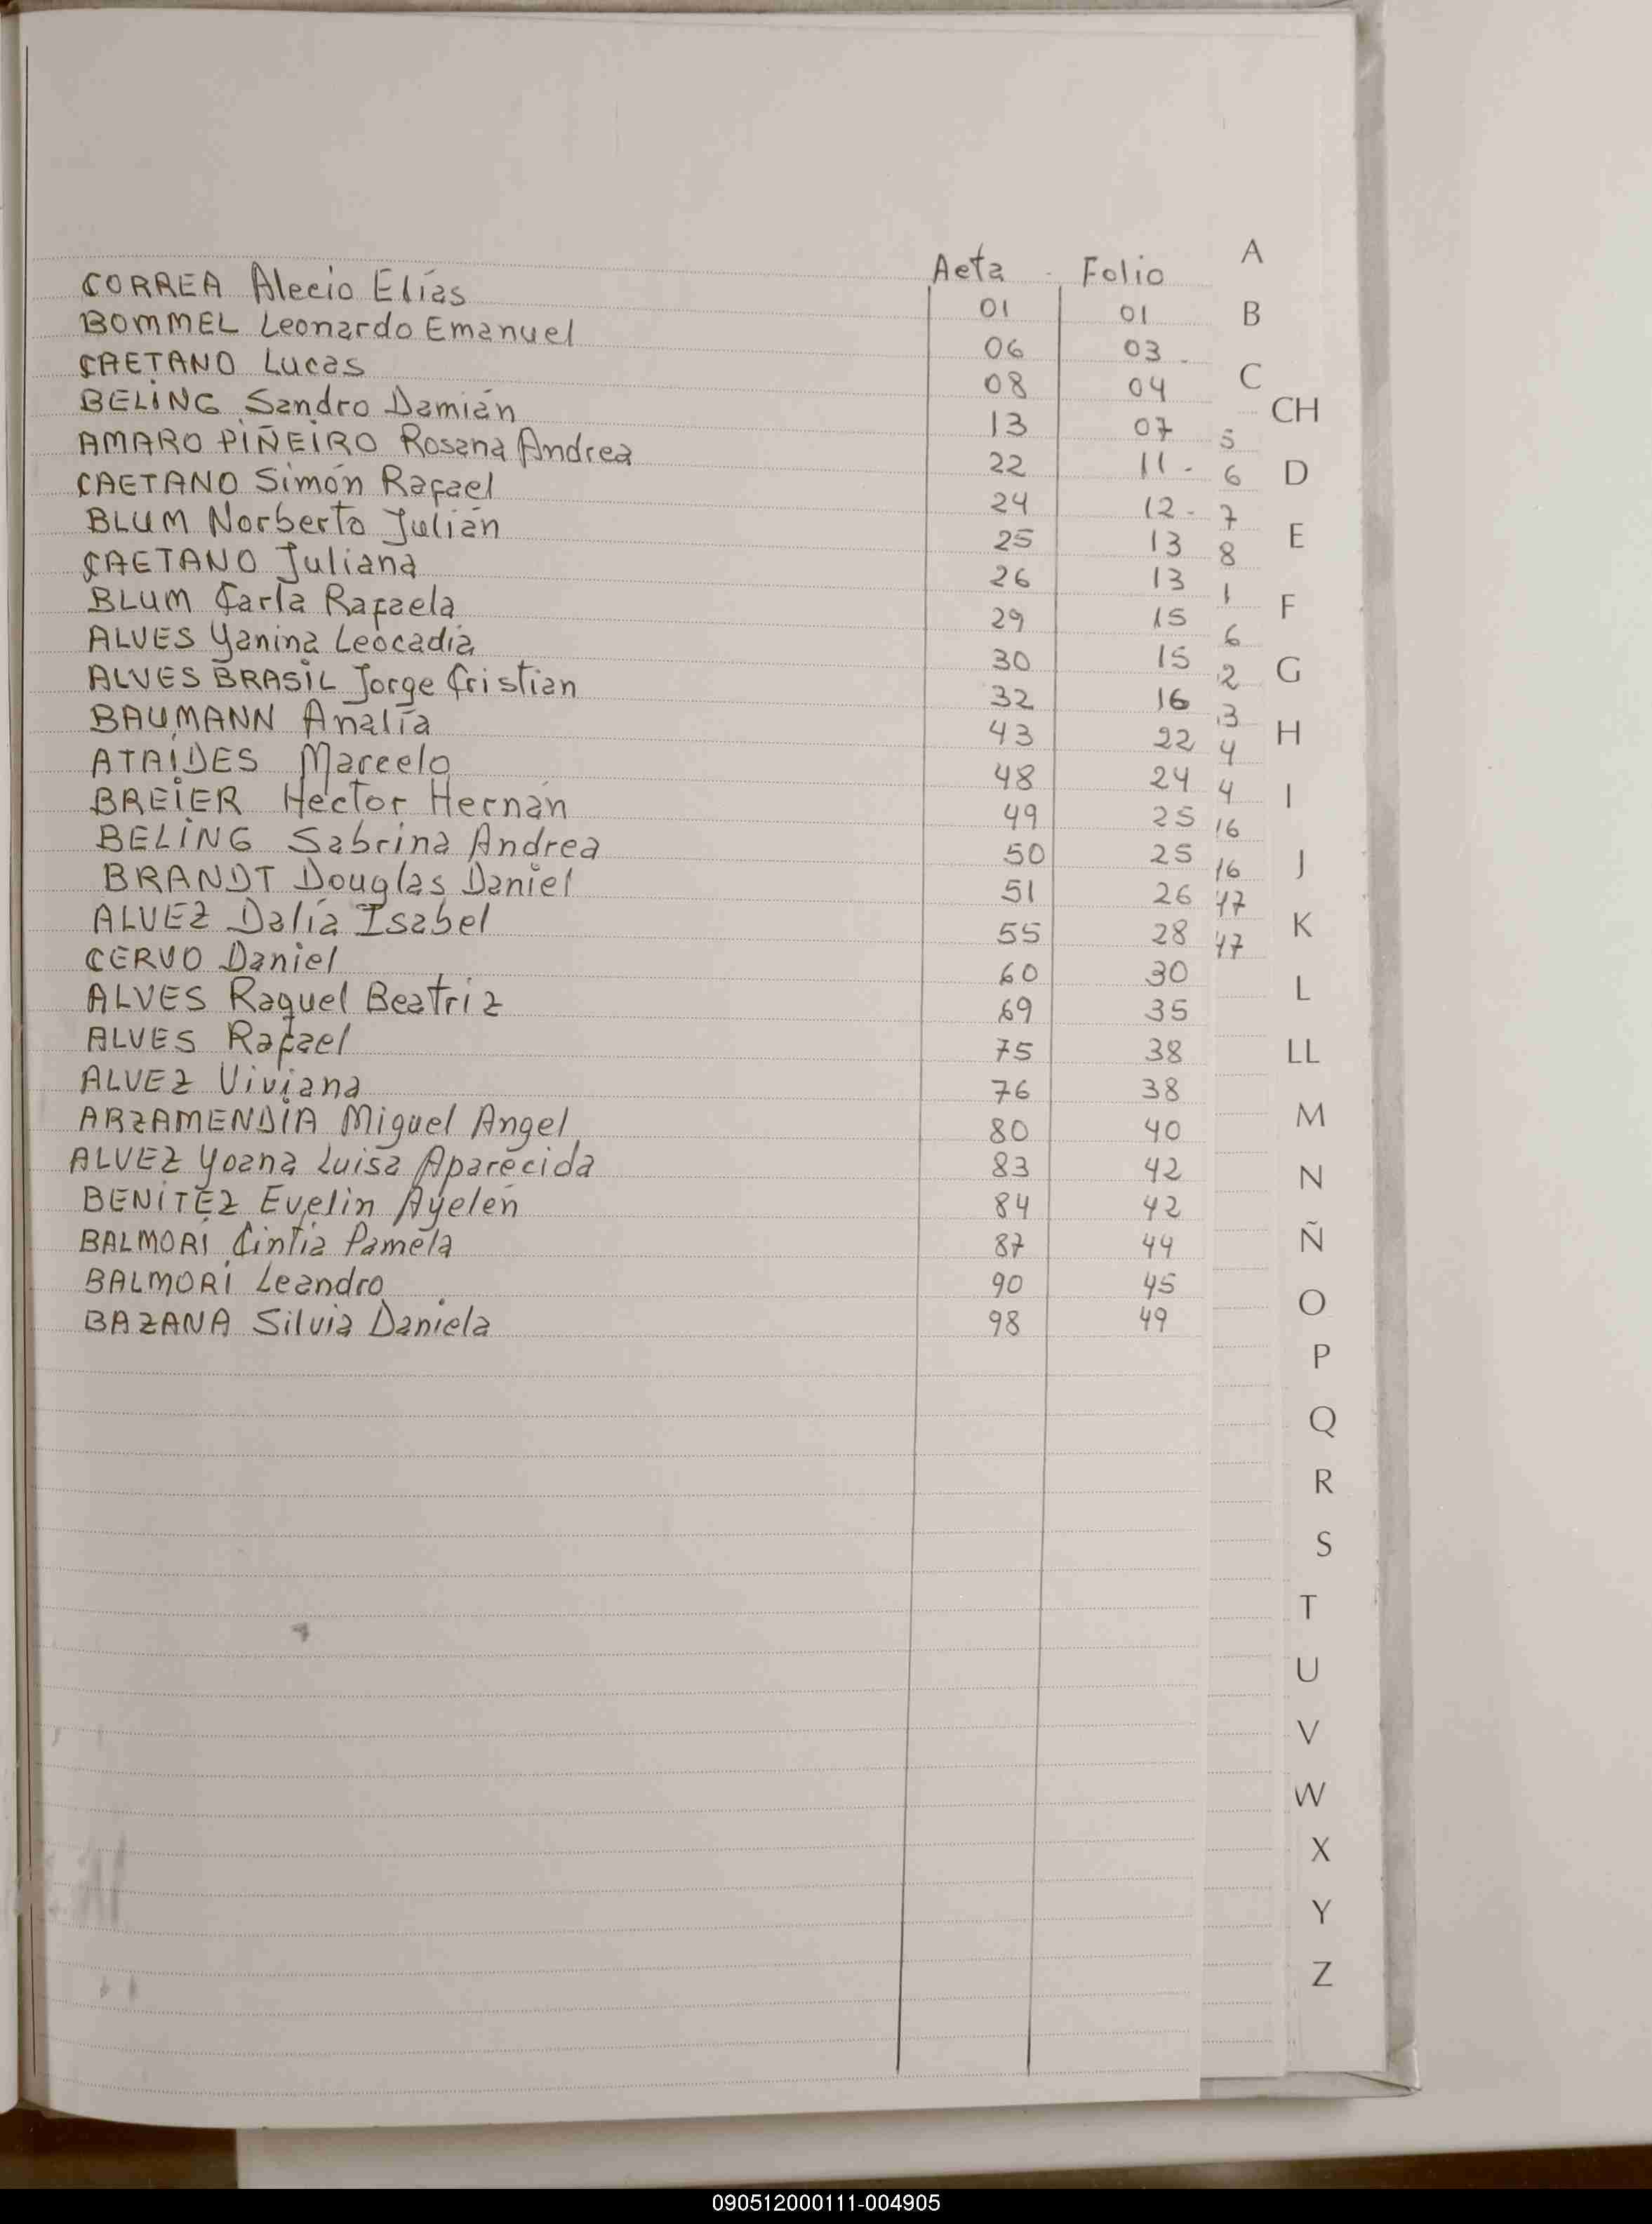 Acta Folio
CORREA Alecio Elías 01 01
BOMMEL Leonardo Emanuel 06 03
CAETANO Lucas 08 04
BELING Sandro Damián 13 07
AMARO PIÑEIRO Rosana Andrea 22 11
CAETANO Simón Rafael 24 12
BLUM Norberto Julián 25 13
CAETANO Juliana 26 13
BLUM Carla Rafaela 29 15
ALVES Yanina Leocadia 30 15
ALVES BRASIL Jorge Cristian 32 16
BAUMANN Analía 43 22
ATAIDES Marcelo 48 24
BREIER Héctor Hernán 49 25
BELING Sabrina Andrea 50 25
BRANDT Douglas Daniel 51 26
ALVEZ Dalia Isabel 55 28
CERVO Daniel 60 30
ALVES Raquel Beatriz 69 35
ALVES Rafael 75 38
ALVEZ Viviana 76 38
ARZAMENDIA Miguel Angel 80 40
ALVEZ Yoana Luisa Aparecida 83 42
BENITEZ Evelin Ayelén 84 42
BALMORI Cintia Pamela 87 44
BALMORI Leandro 90 45
BAZANA Silvia Daniela 98 49
5
6
7
8
1
6
2
3
4
4
16
16
47
47
A
B
C
CH
D
E
F
G
H
I
J
K
L
LL
M
N
Ñ
O
P
Q
R
S
T
U
V
W
X
Y
Z
090512000111-004905